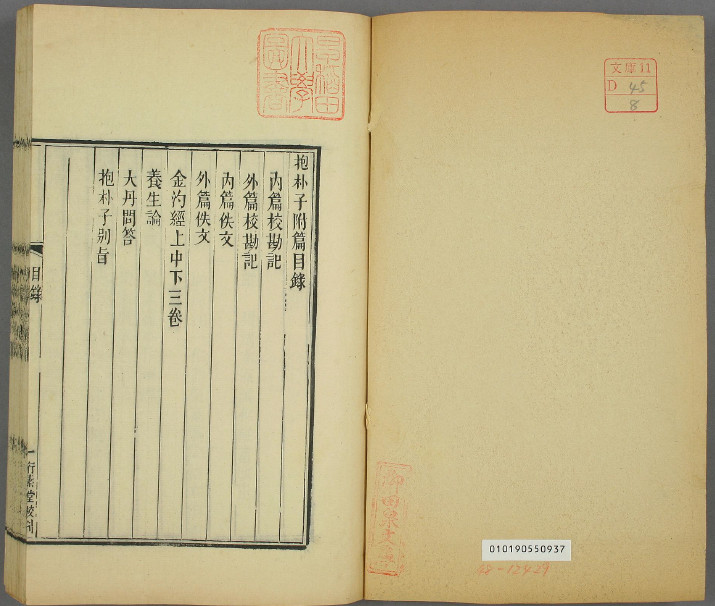 文庫11
D 45
8
010190550937
48-12429
早稲田
大學
圖書
抱朴子附篇目錄
內篇校勘記
外篇校勘記
內篇佚文
外篇佚文
金汋經上中下三卷
養生論
大丹問答
抱朴子別旨
目錄